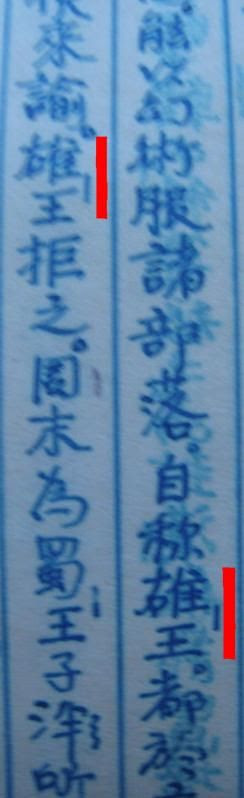 能以幻術服諸部落。自称雄王。都於
來諭。雄王拒之。周末為蜀王子泮所